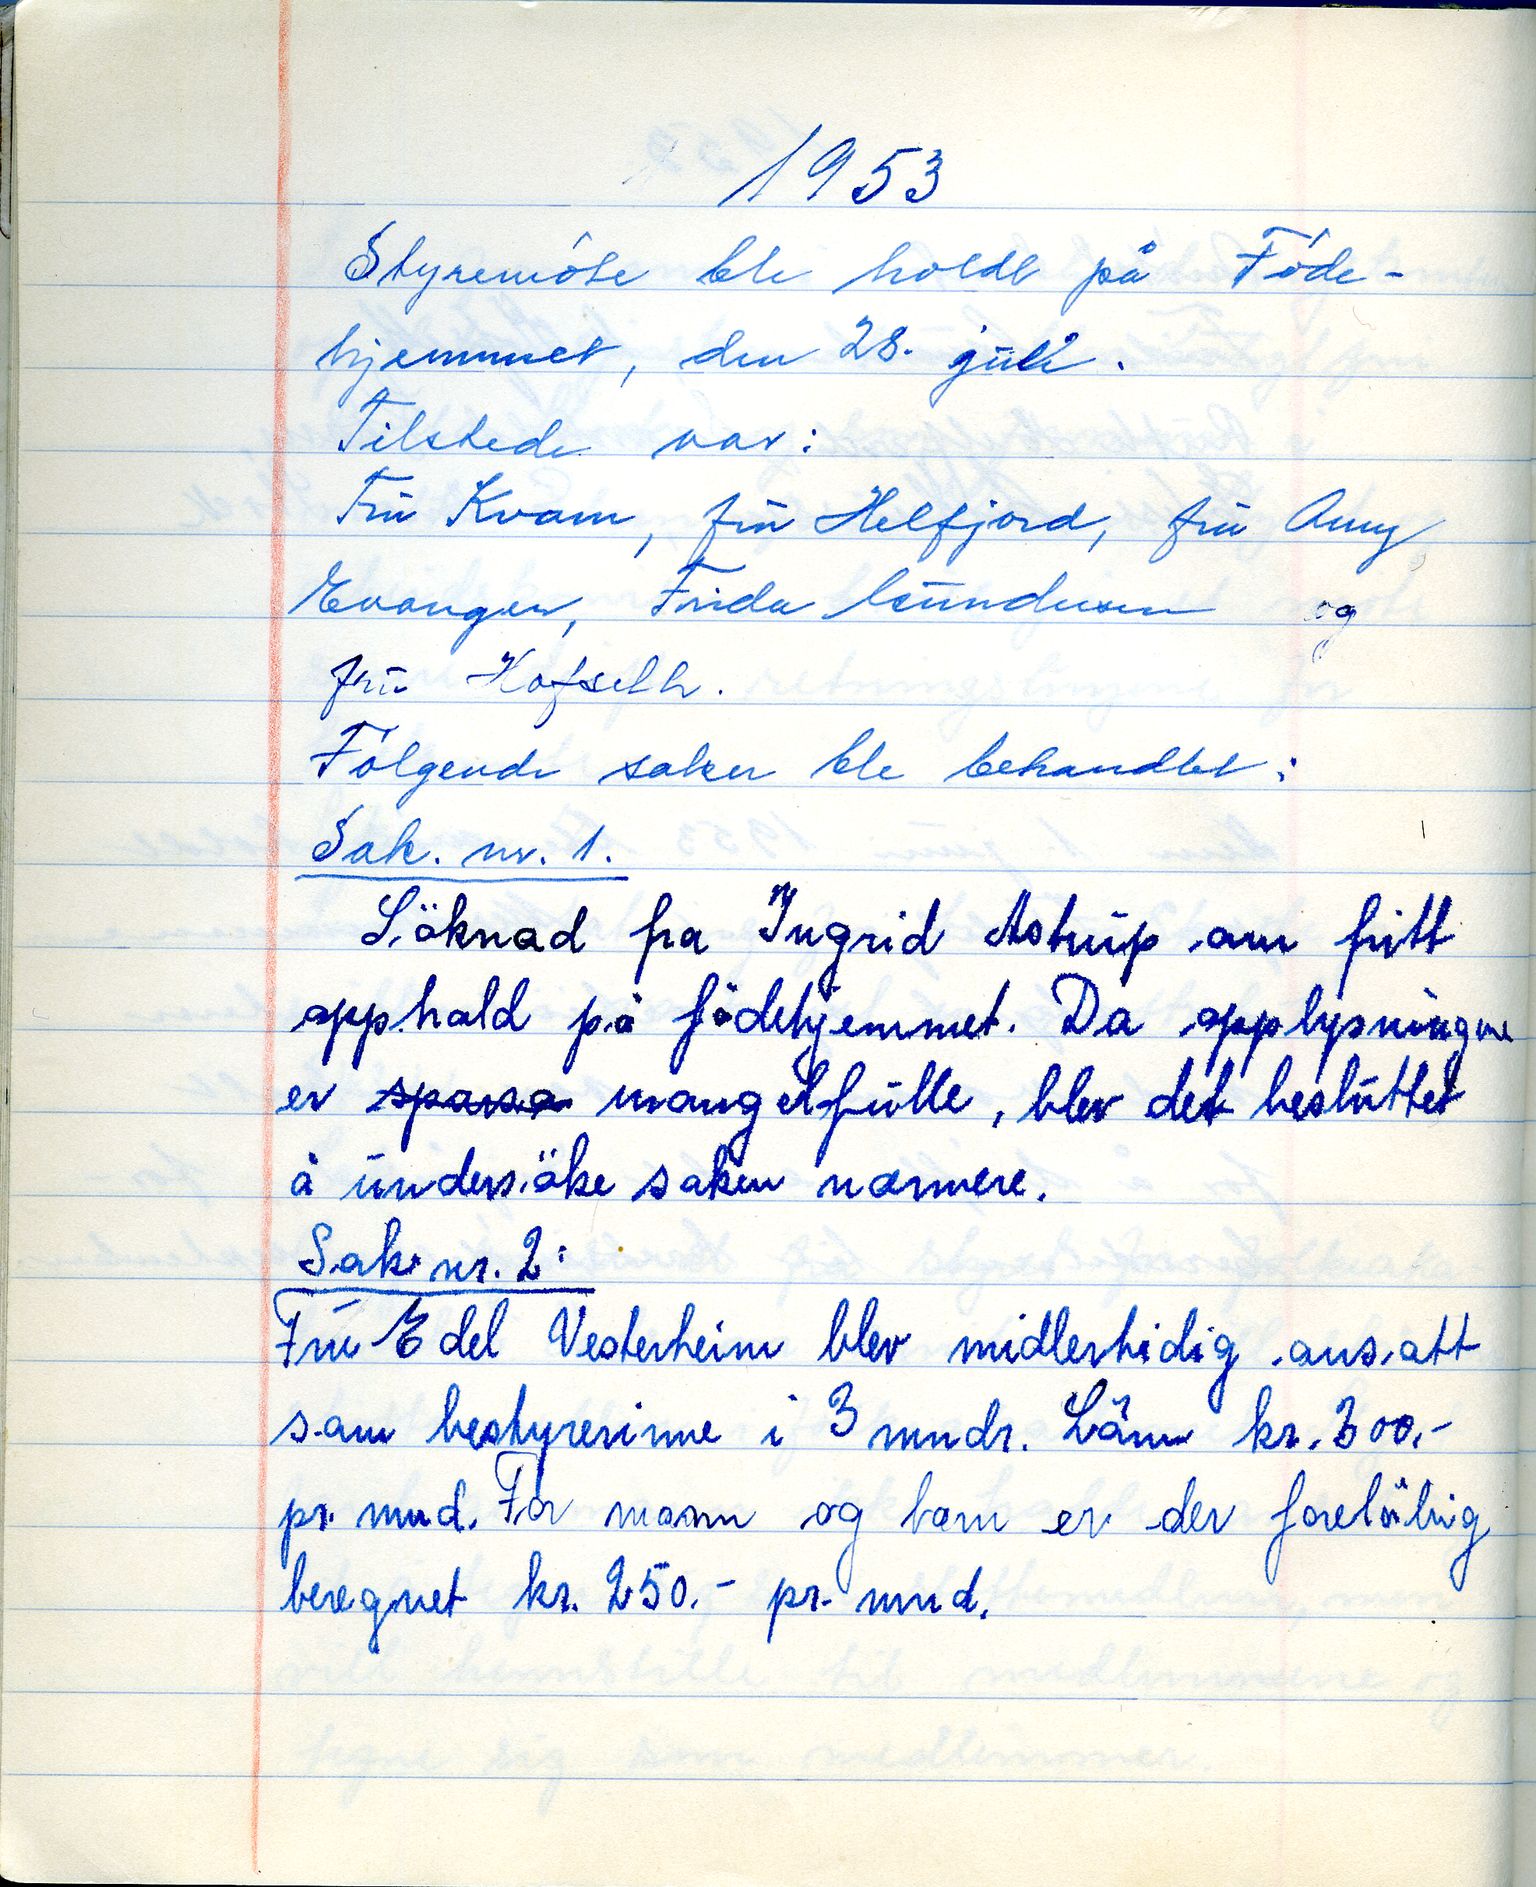 1953
Styremöte ble holdt på Föde-
hjemmet, den 28. juli.
Tilstede var:
Fru Kvam, fru Helfjord, fru Anny
Evanger, Frida og
fru Hofseth.
Følgende saker ble behandlet:
Sak. nr. 1.
Söknad fra Ingrid Astrup om fritt
opphold på födehjemmet. Da opplysningene
er sparso mangelfulle, blev det besluttet
å undersöke saken nærmere.
Sak nr. 2:
Fru Edel Vesterheim blev midlertidig ansatt
som bestyrerinne i 3 mndr. Lönn kr. 300.-
pr. mnd. For mann og barn er der forelöbig
beregnet kr. 250.- pr. mnd.